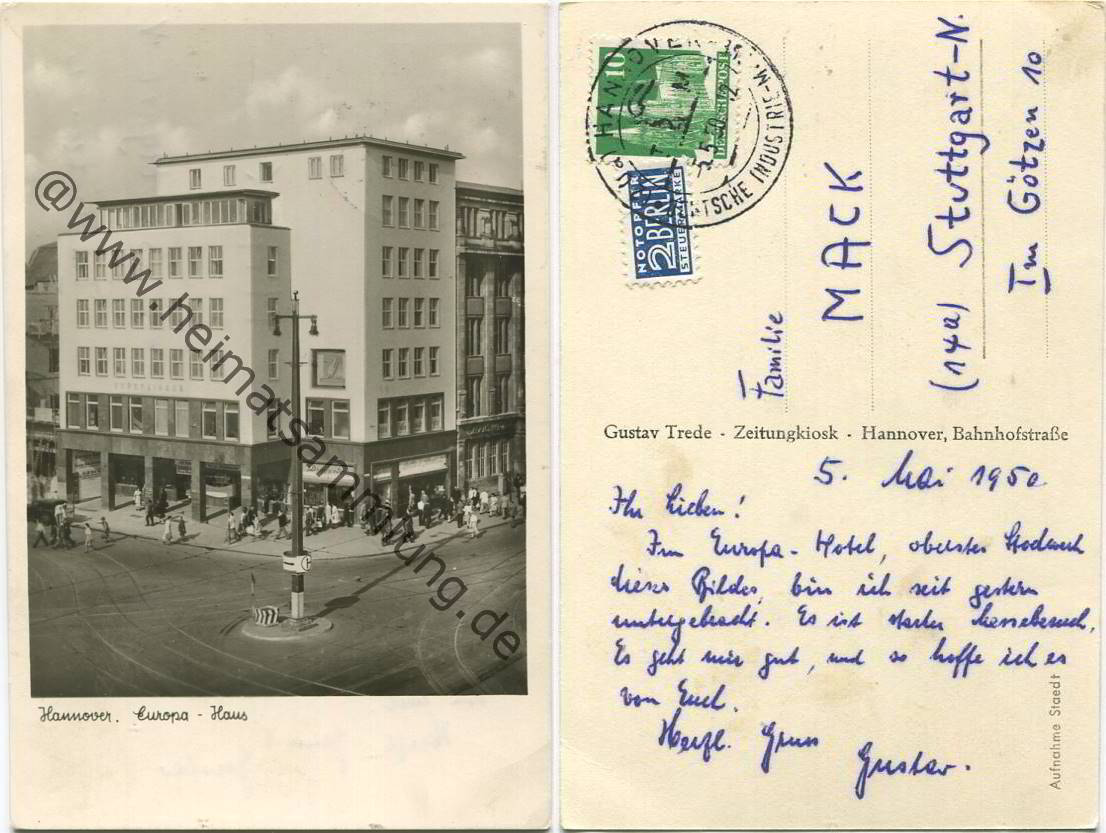 @www.heimatsammlung.de
EUROPAHAUS
Hannover. Europa - Haus
HANNOVER
5.5.50
TSCHE INDUSTRIE-M
10
DEUTSCHE POST
NOTOPFER
2 BERLIN
STEUERMARKE
Familie
MACK
(14a) Stuttgart-N.
Im Götzen 10
Gustav Trede · Zeitungkiosk · Hannover, Bahnhofstraße
5. Mai 1950
Ihr Lieben!
Im Europa-Hotel, oberstes Stockwerk
dieses Bildes, bin ich seit gestern
untergebracht. Es ist starker Messebesuch.
Es geht mir gut, und so hoffe ich es
von Euch.
Herzl. Gruss
Gustav.
Aufnahme Staedt